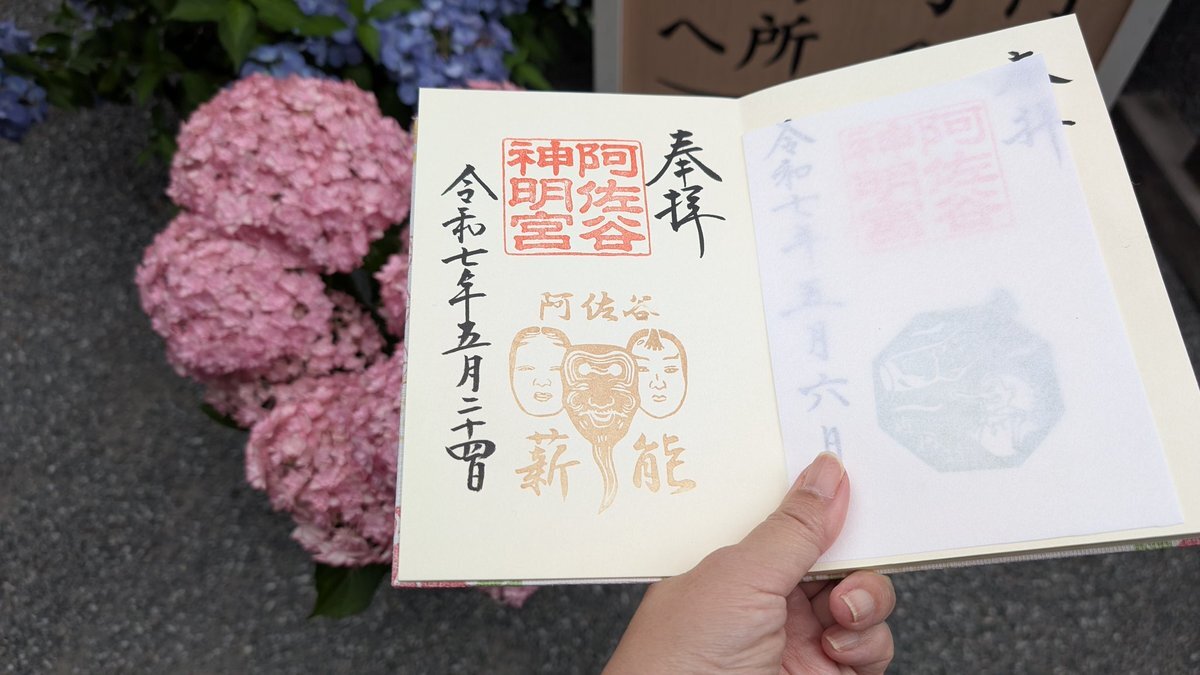 所
へ
奉拝
阿佐谷
神明宮
令和七年五月六日
奉拝
阿佐谷
神明宮
阿佐谷
薪能
令和七年五月二十四日